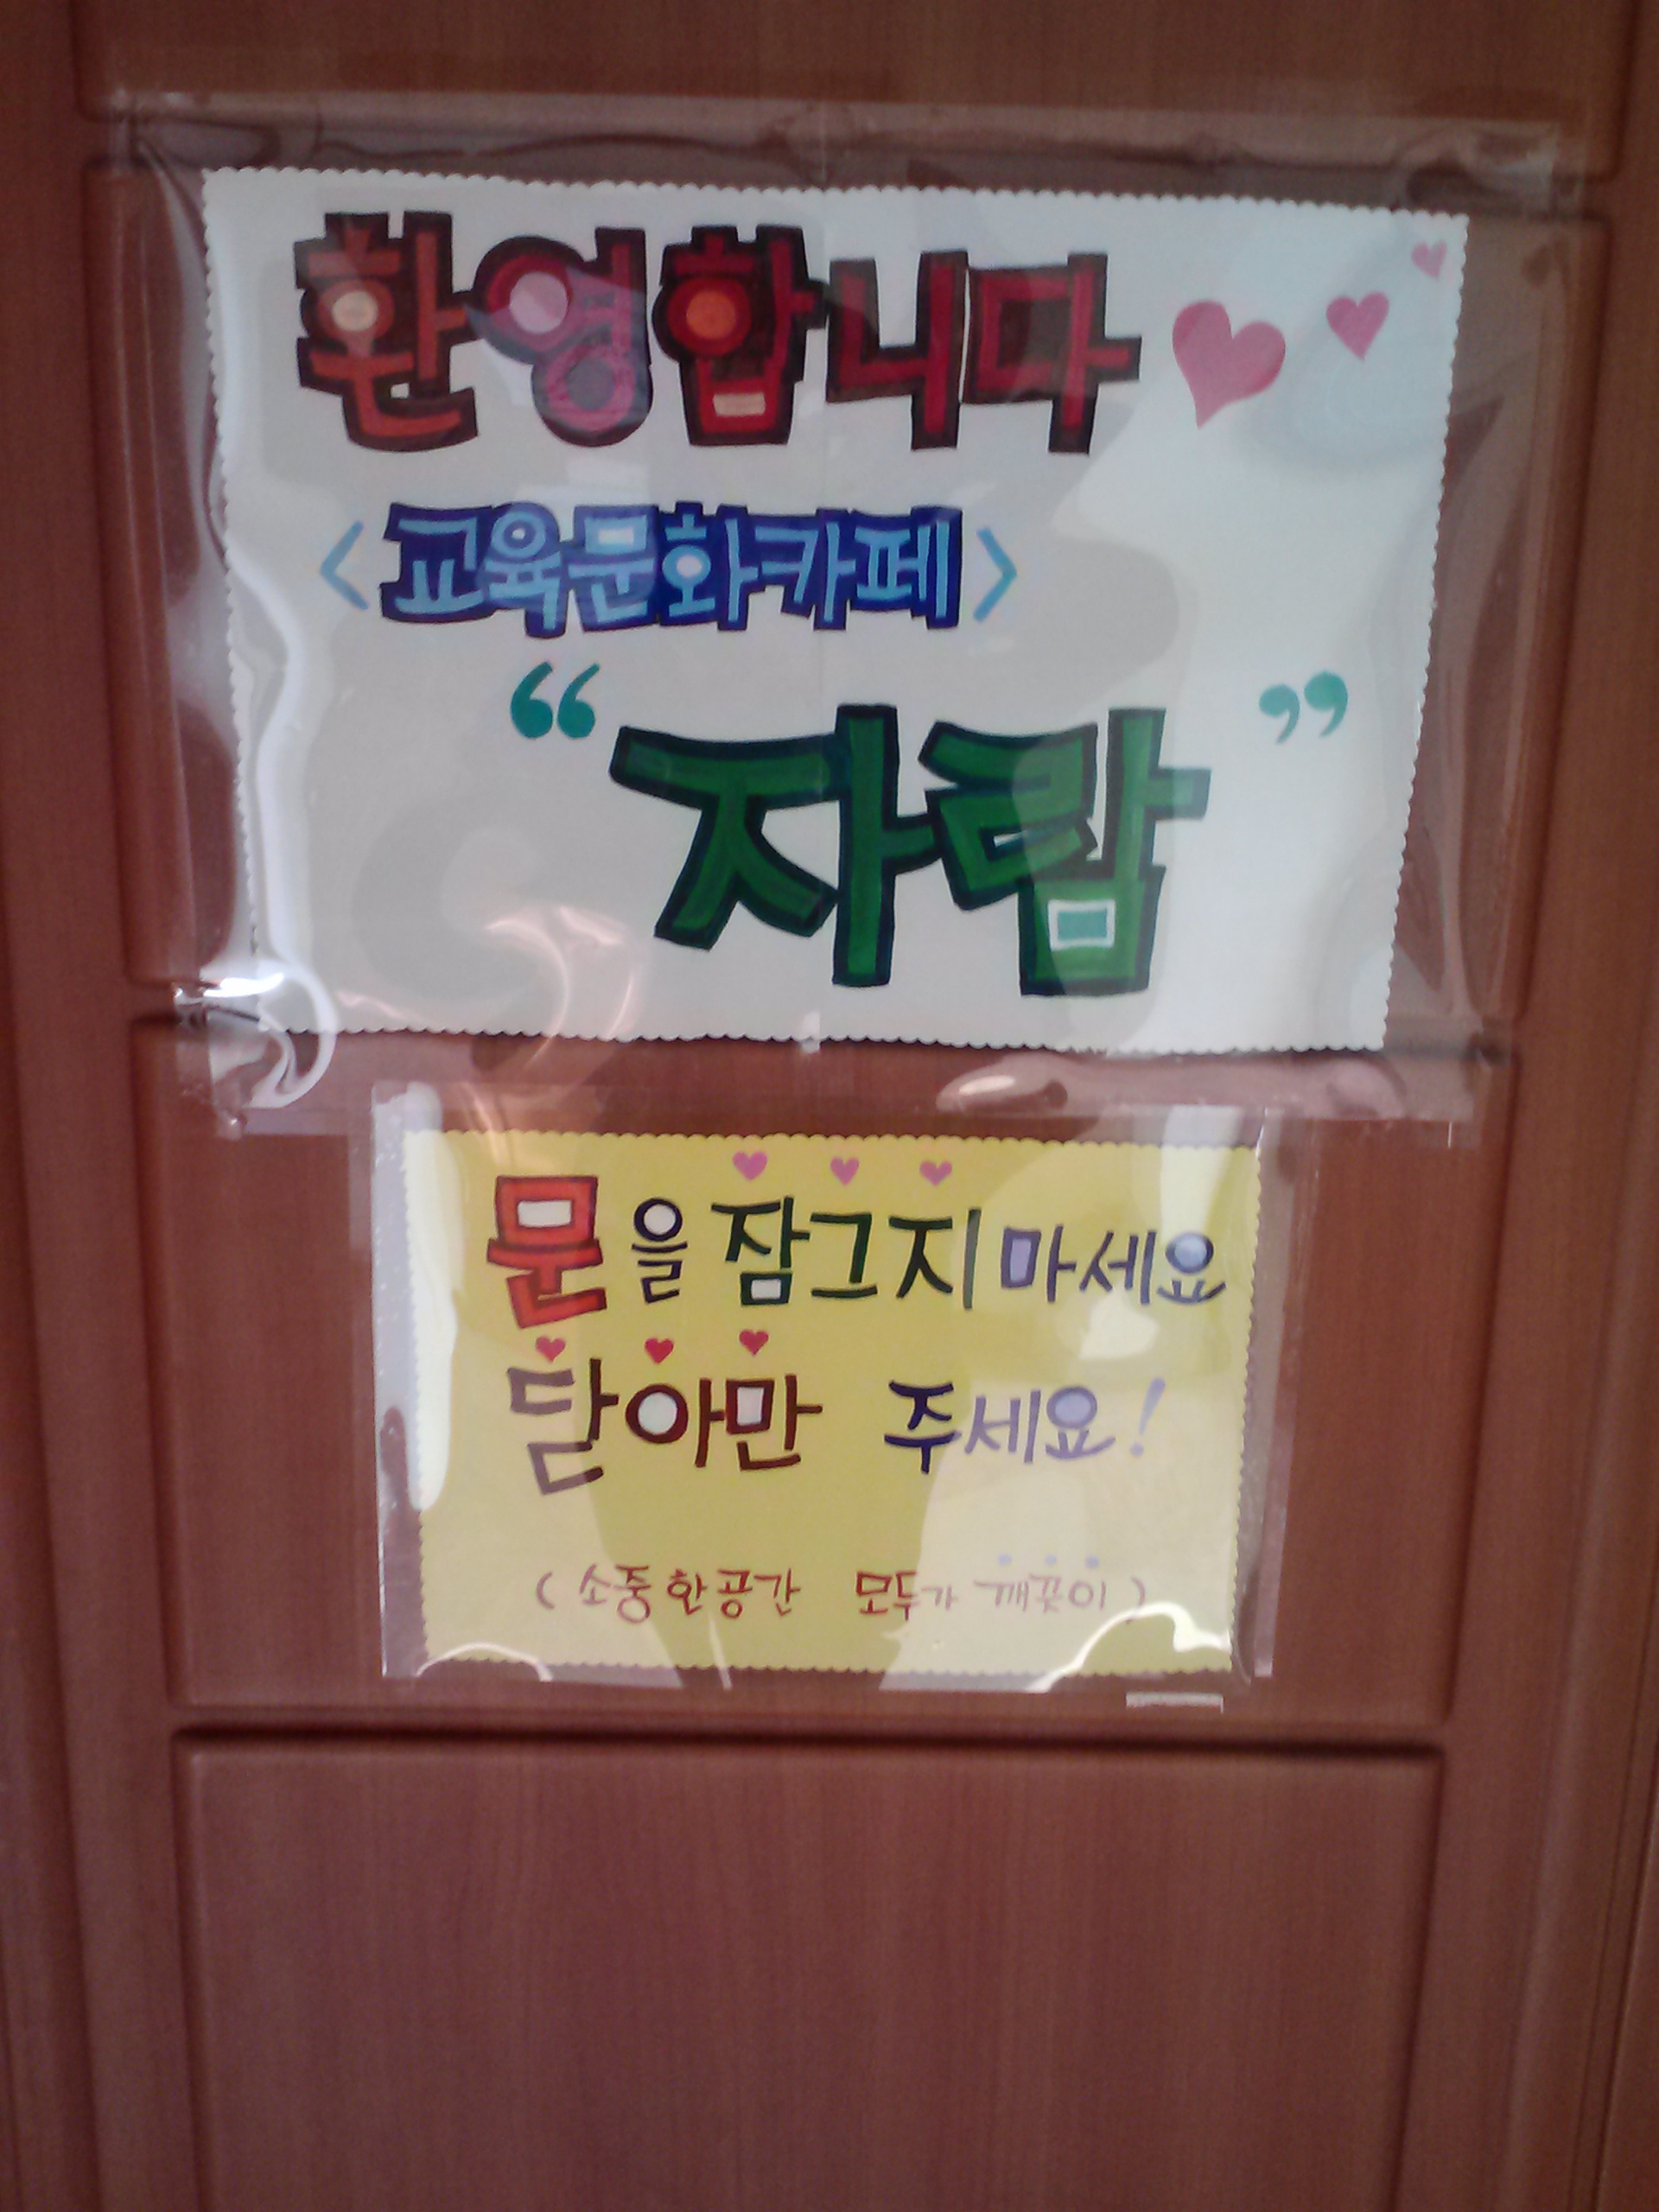 환영합니다
<교육문화카페>
“자람”
문을 잠그지 마세요
닫아만 주세요!
(소중한공간 모두가 깨끗이)